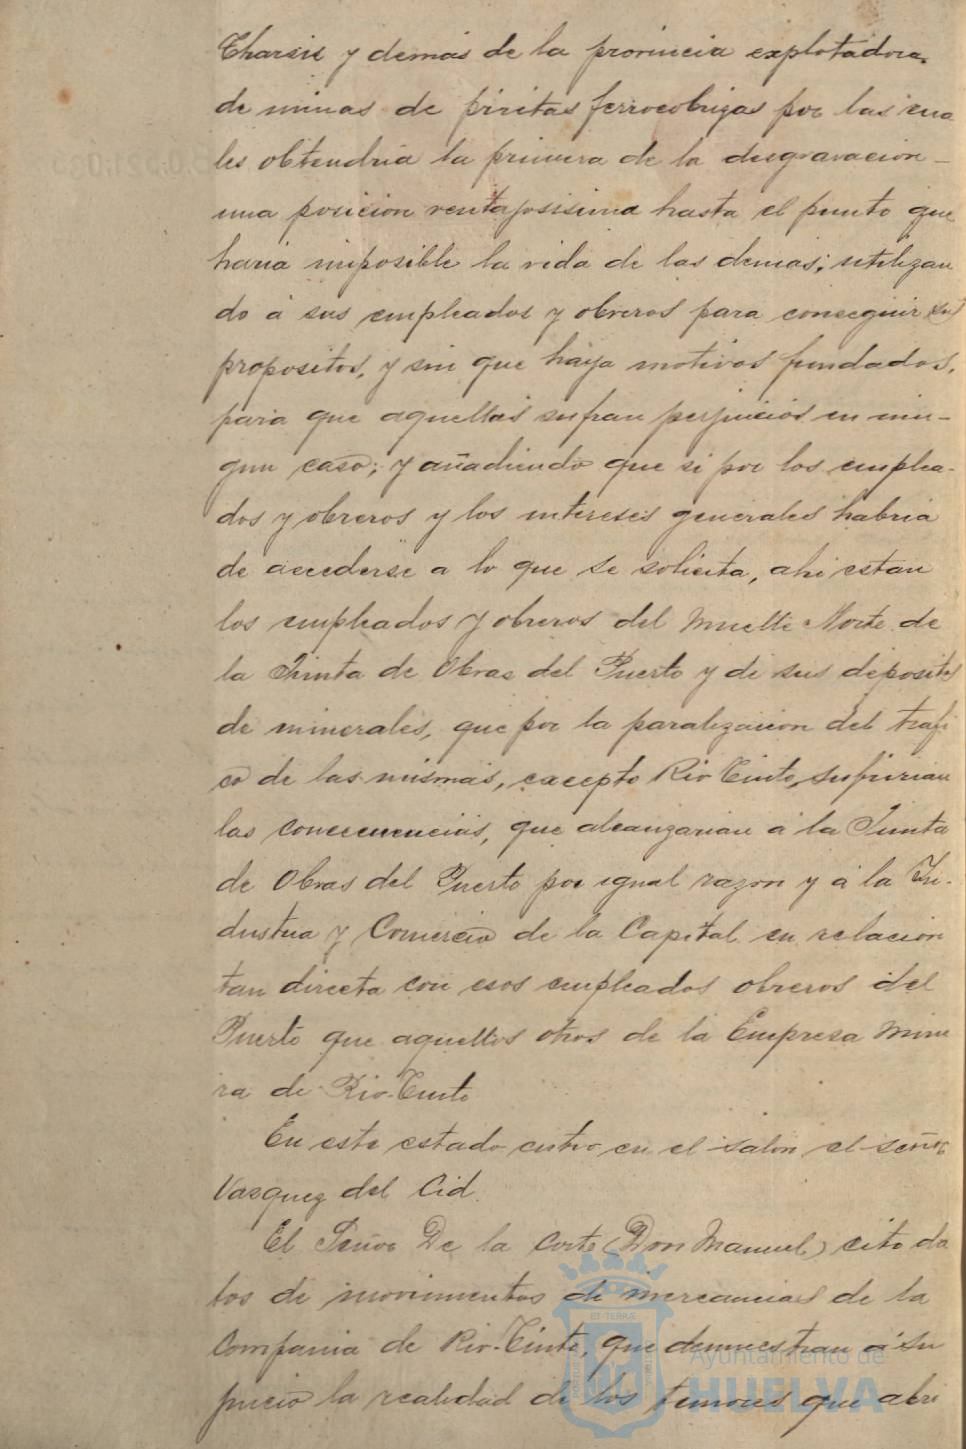 Tharsis y demás de la provincia explotadora.
de minas de piritas ferrocobrizas por las cua
les obtendria la primera de la desgravacion-
una posicion ventajosisima hasta el punto que
haria imposible la vida de las demas; utilizan
do á sus empleados y obreros para conseguir sus
propositos, y sin que haya motivos fundados,
para que aquellas sufran perjuicios en nin-
gun caso; y añadiendo que si por los emplea-
dos y obreros y los intereses generales habria
de accederse a lo que se solicita, ahi estan
los empleados y obreros del Muelle Norte de
la Junta de Obras del Puerto y de sus depositos
de minerales, que por la paralizacion del trafi
co de las mismas, excepto Rio Tinto, sufririan
las consecuencias, que alcanzarian á la Junta
de Obras del Puerto por igual razon y á la In-
dustria y Comercio de la Capital en relacion
tan directa con esos empleados obreros del
Puerto que aquellos otros de la Empresa mine
ra de Rio-Tinto
En este estado entro en el salon el señor
Vazquez del Cid.
El Señor De la Corte (Don Manuel) cito da
tos de movimientos de mercancias de la
Compania de Rio-Tinto, que demuestran á su
juicio la realidad de los temores que abri
Ayuntamiento de
HUELVA